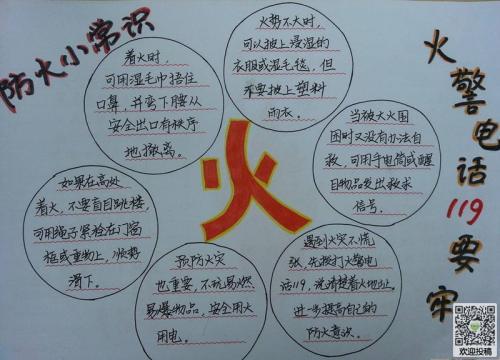 防火小常识
着火时，
可用湿毛巾捂住
口鼻，并弯下腰从
安全出口有秩序
地撤离。
火势不大时，
可以披上浸湿的
衣服或湿毛毯，但
不要披上塑料
雨衣。
当被大火围
困时又没有办法自
救，可用手电筒或醒
目物品发出求救
信号。
如果在高处
着火，不要盲目跳楼，
可用绳子紧拴在门窗
框或重物上，顺势
滑下。
预防火灾
也重要，不玩易燃
易爆物品，安全用火
用电。
遇到火灾不慌
张，先拨打火警电
话119，说清楚着火地址。
进步提高自己的
防火意识。
火
火警电话119要牢
欢迎投稿